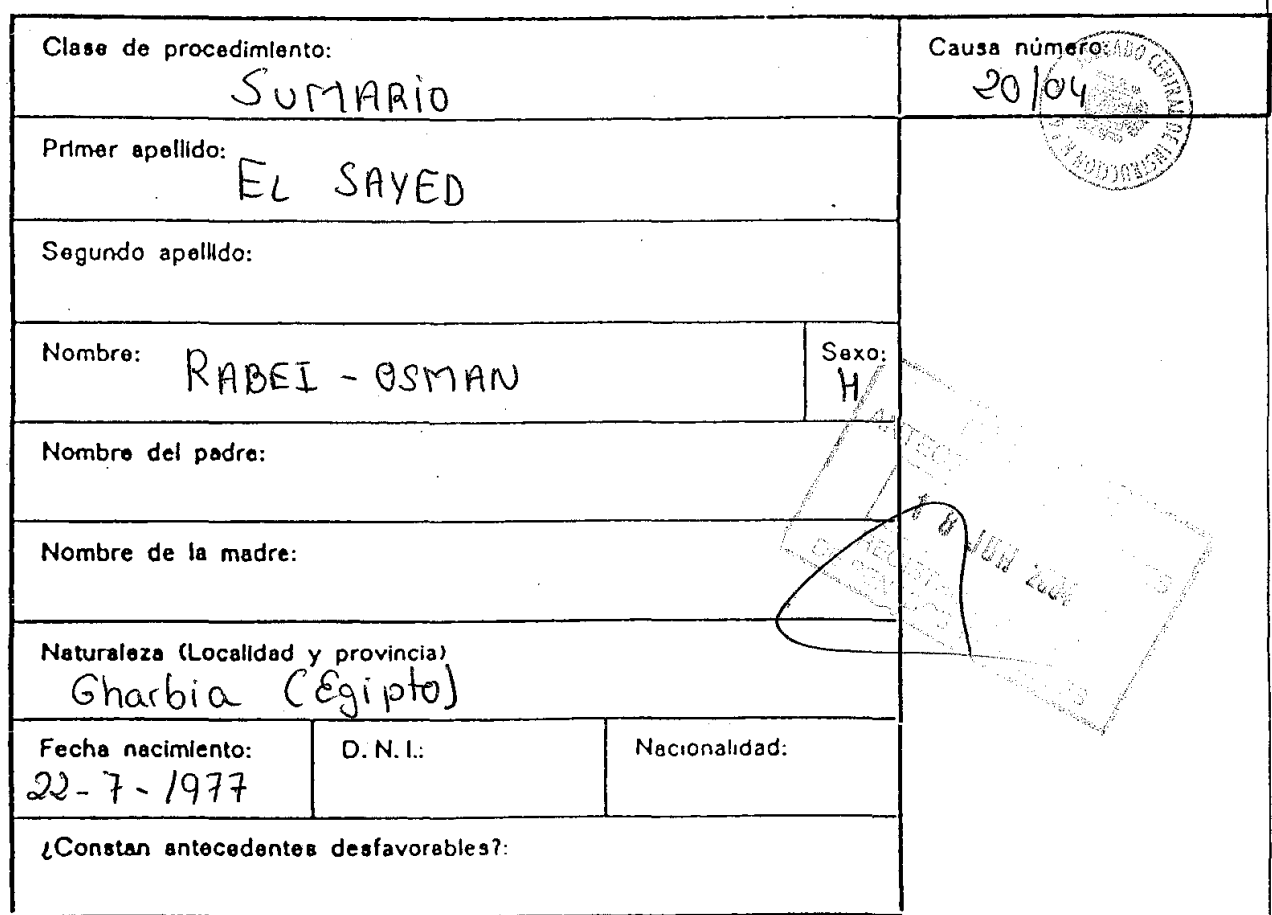 Clase de procedimiento:
SUMARIO
Causa número:
20/04
JUZGADO CENTRAL DE INSTRUCCION N.
Primer apellido:
EL SAYED
Segundo apellido:
Nombre:
RABEI - OSMAN
Sexo:
H
Nombre del padre:
Nombre de la madre:
18 JUN 2004
Naturaleza (Localidad y provincia)
Gharbia (Egipto)
Fecha nacimiento:
22-7-1977
D. N. I.:
Nacionalidad:
¿Constan antecedentes desfavorables?: